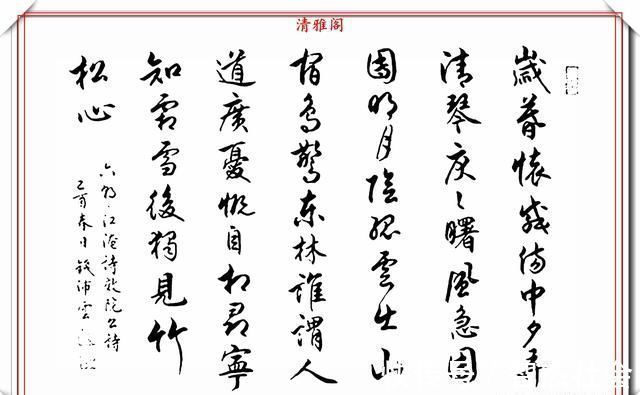 清雅阁
歲暮懷感傷中夕弄
清琴戾々曙風急团
團明月陰孤雲出山
宿鳥驚東林誰謂人
道廣憂慨自相尋寧
知霜雪後獨見竹
松心
六朝江淹詩效阮公詩
乙酉春日錢沛雲